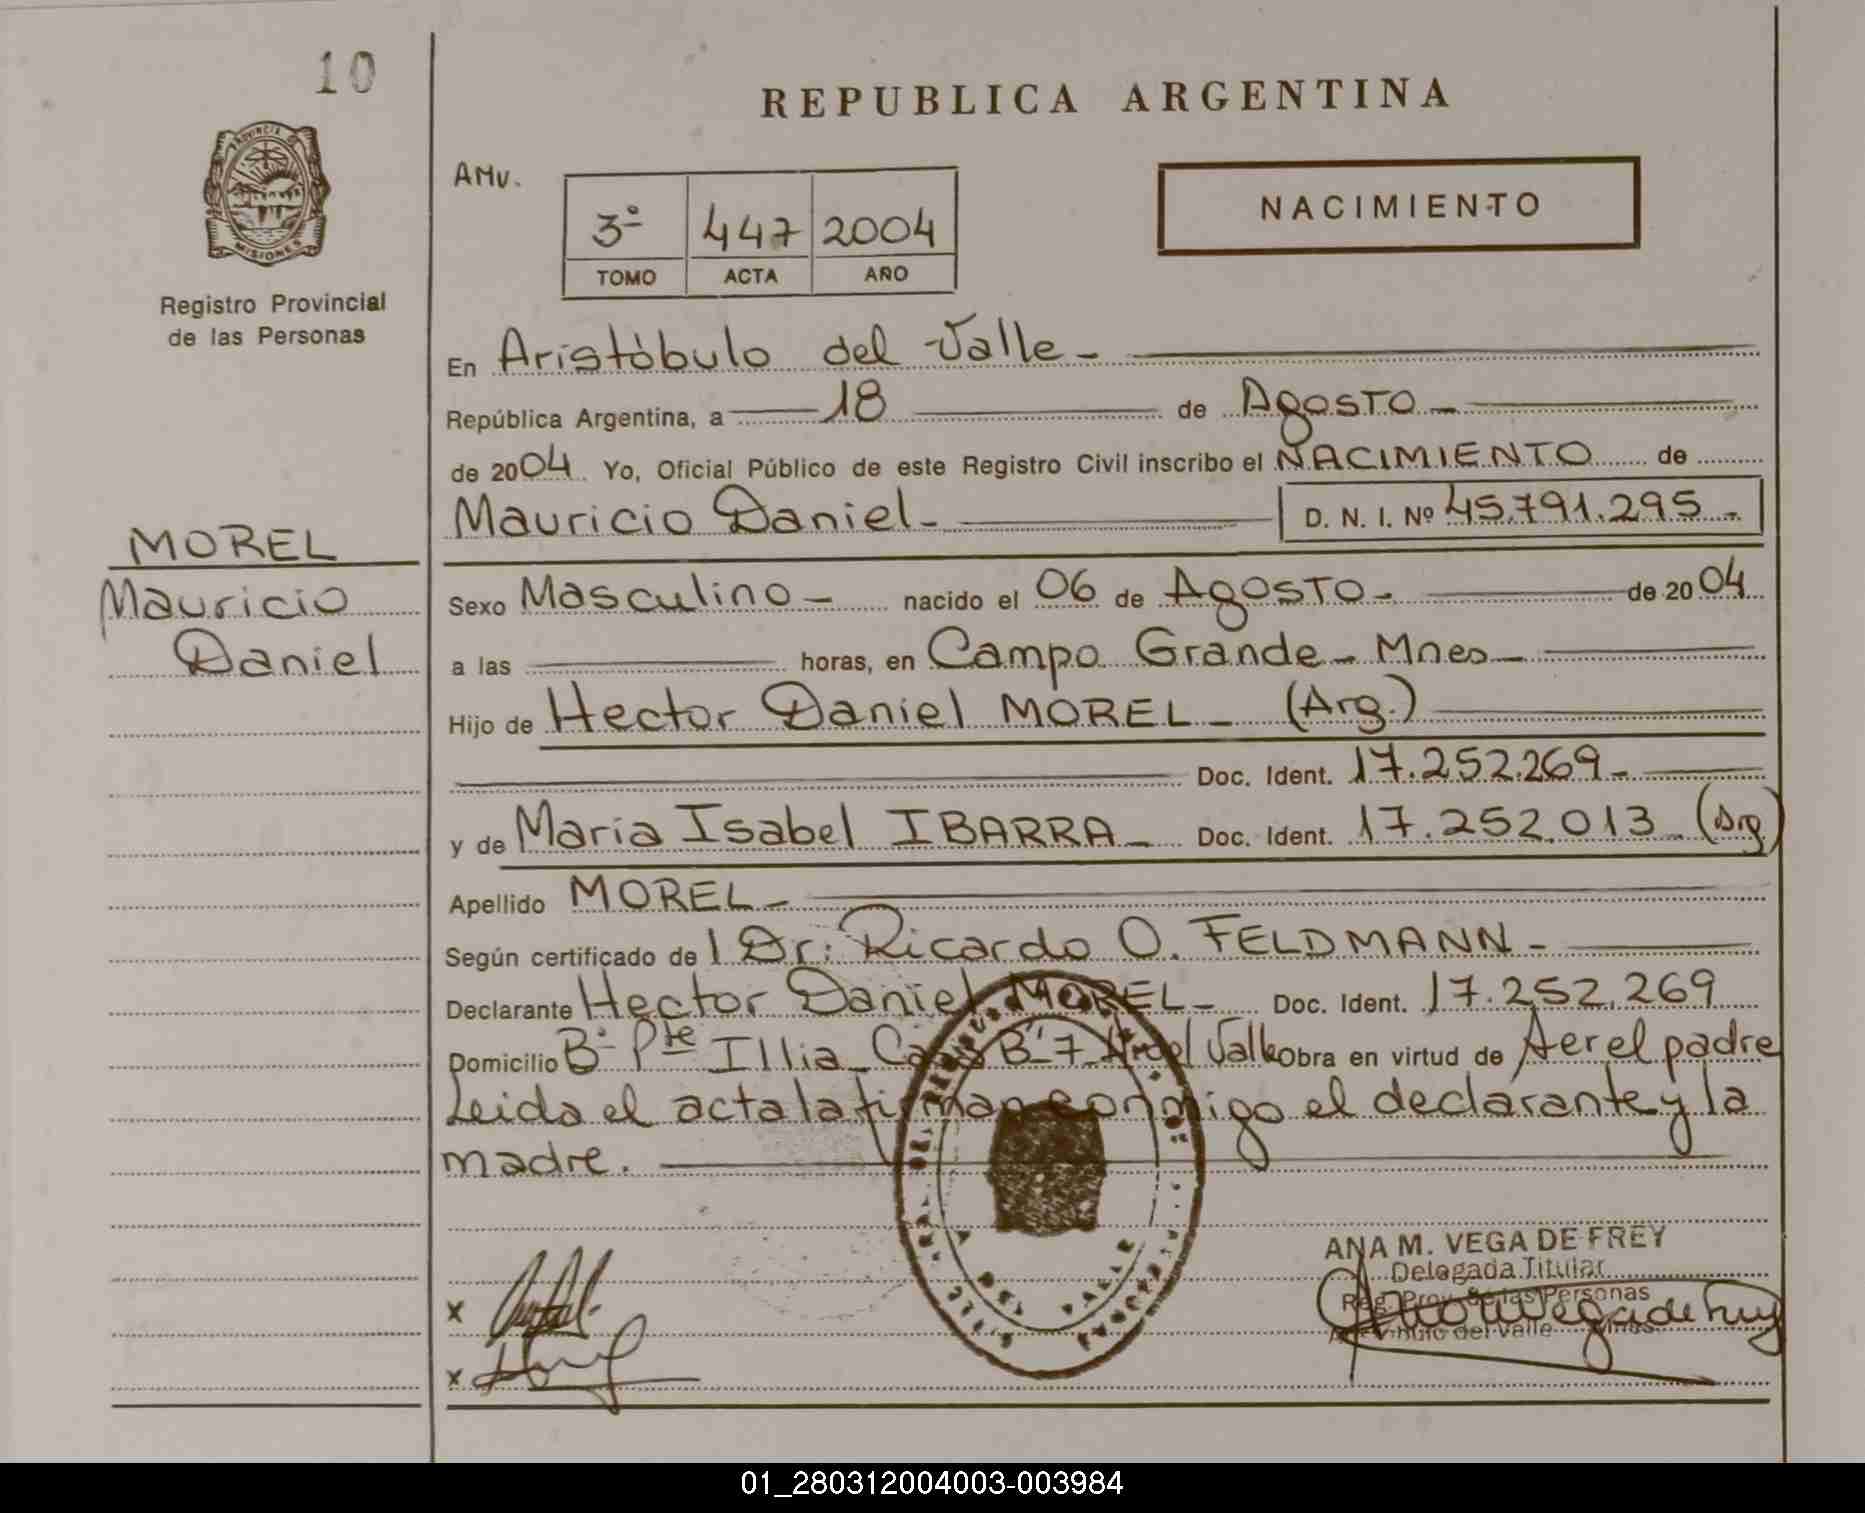 10
REPUBLICA ARGENTINA
PROVINCIA DE
MISIONES
Registro Provincial
de las Personas
AMV.
3º 447 2004
TOMO ACTA AÑO
NACIMIENTO
En Aristóbulo del Valle-
República Argentina, a 18 de Agosto-
de 2004 Yo, Oficial Público de este Registro Civil inscribo el NACIMIENTO de
Mauricio Daniel- D. N. I. Nº 45.791.295-
MOREL
Mauricio
Daniel
Sexo Masculino- nacido el 06 de Agosto- de 2004
a las horas, en Campo Grande- Mnes-
Hijo de Hector Daniel MOREL- (Arg.)
Doc. Ident. 17.252.269-
y de Maria Isabel IBARRA- Doc. Ident. 17.252.013 (Arg)
Apellido MOREL-
Según certificado de l Dr: Ricardo O. FELDMANN-
Declarante Hector Daniel MOREL- Doc. Ident. 17.252.269
Domicilio Bº Pte Illia Casa B-7 del Valle Obra en virtud de ser el padre
Leida el acta la firman conmigo el declarante y la
madre.
ANA M. VEGA DE FREY
Delegada Titular
Reg. Prov. de las Personas
Aristóbulo del Valle Mnes
x
x
01_280312004003-003984